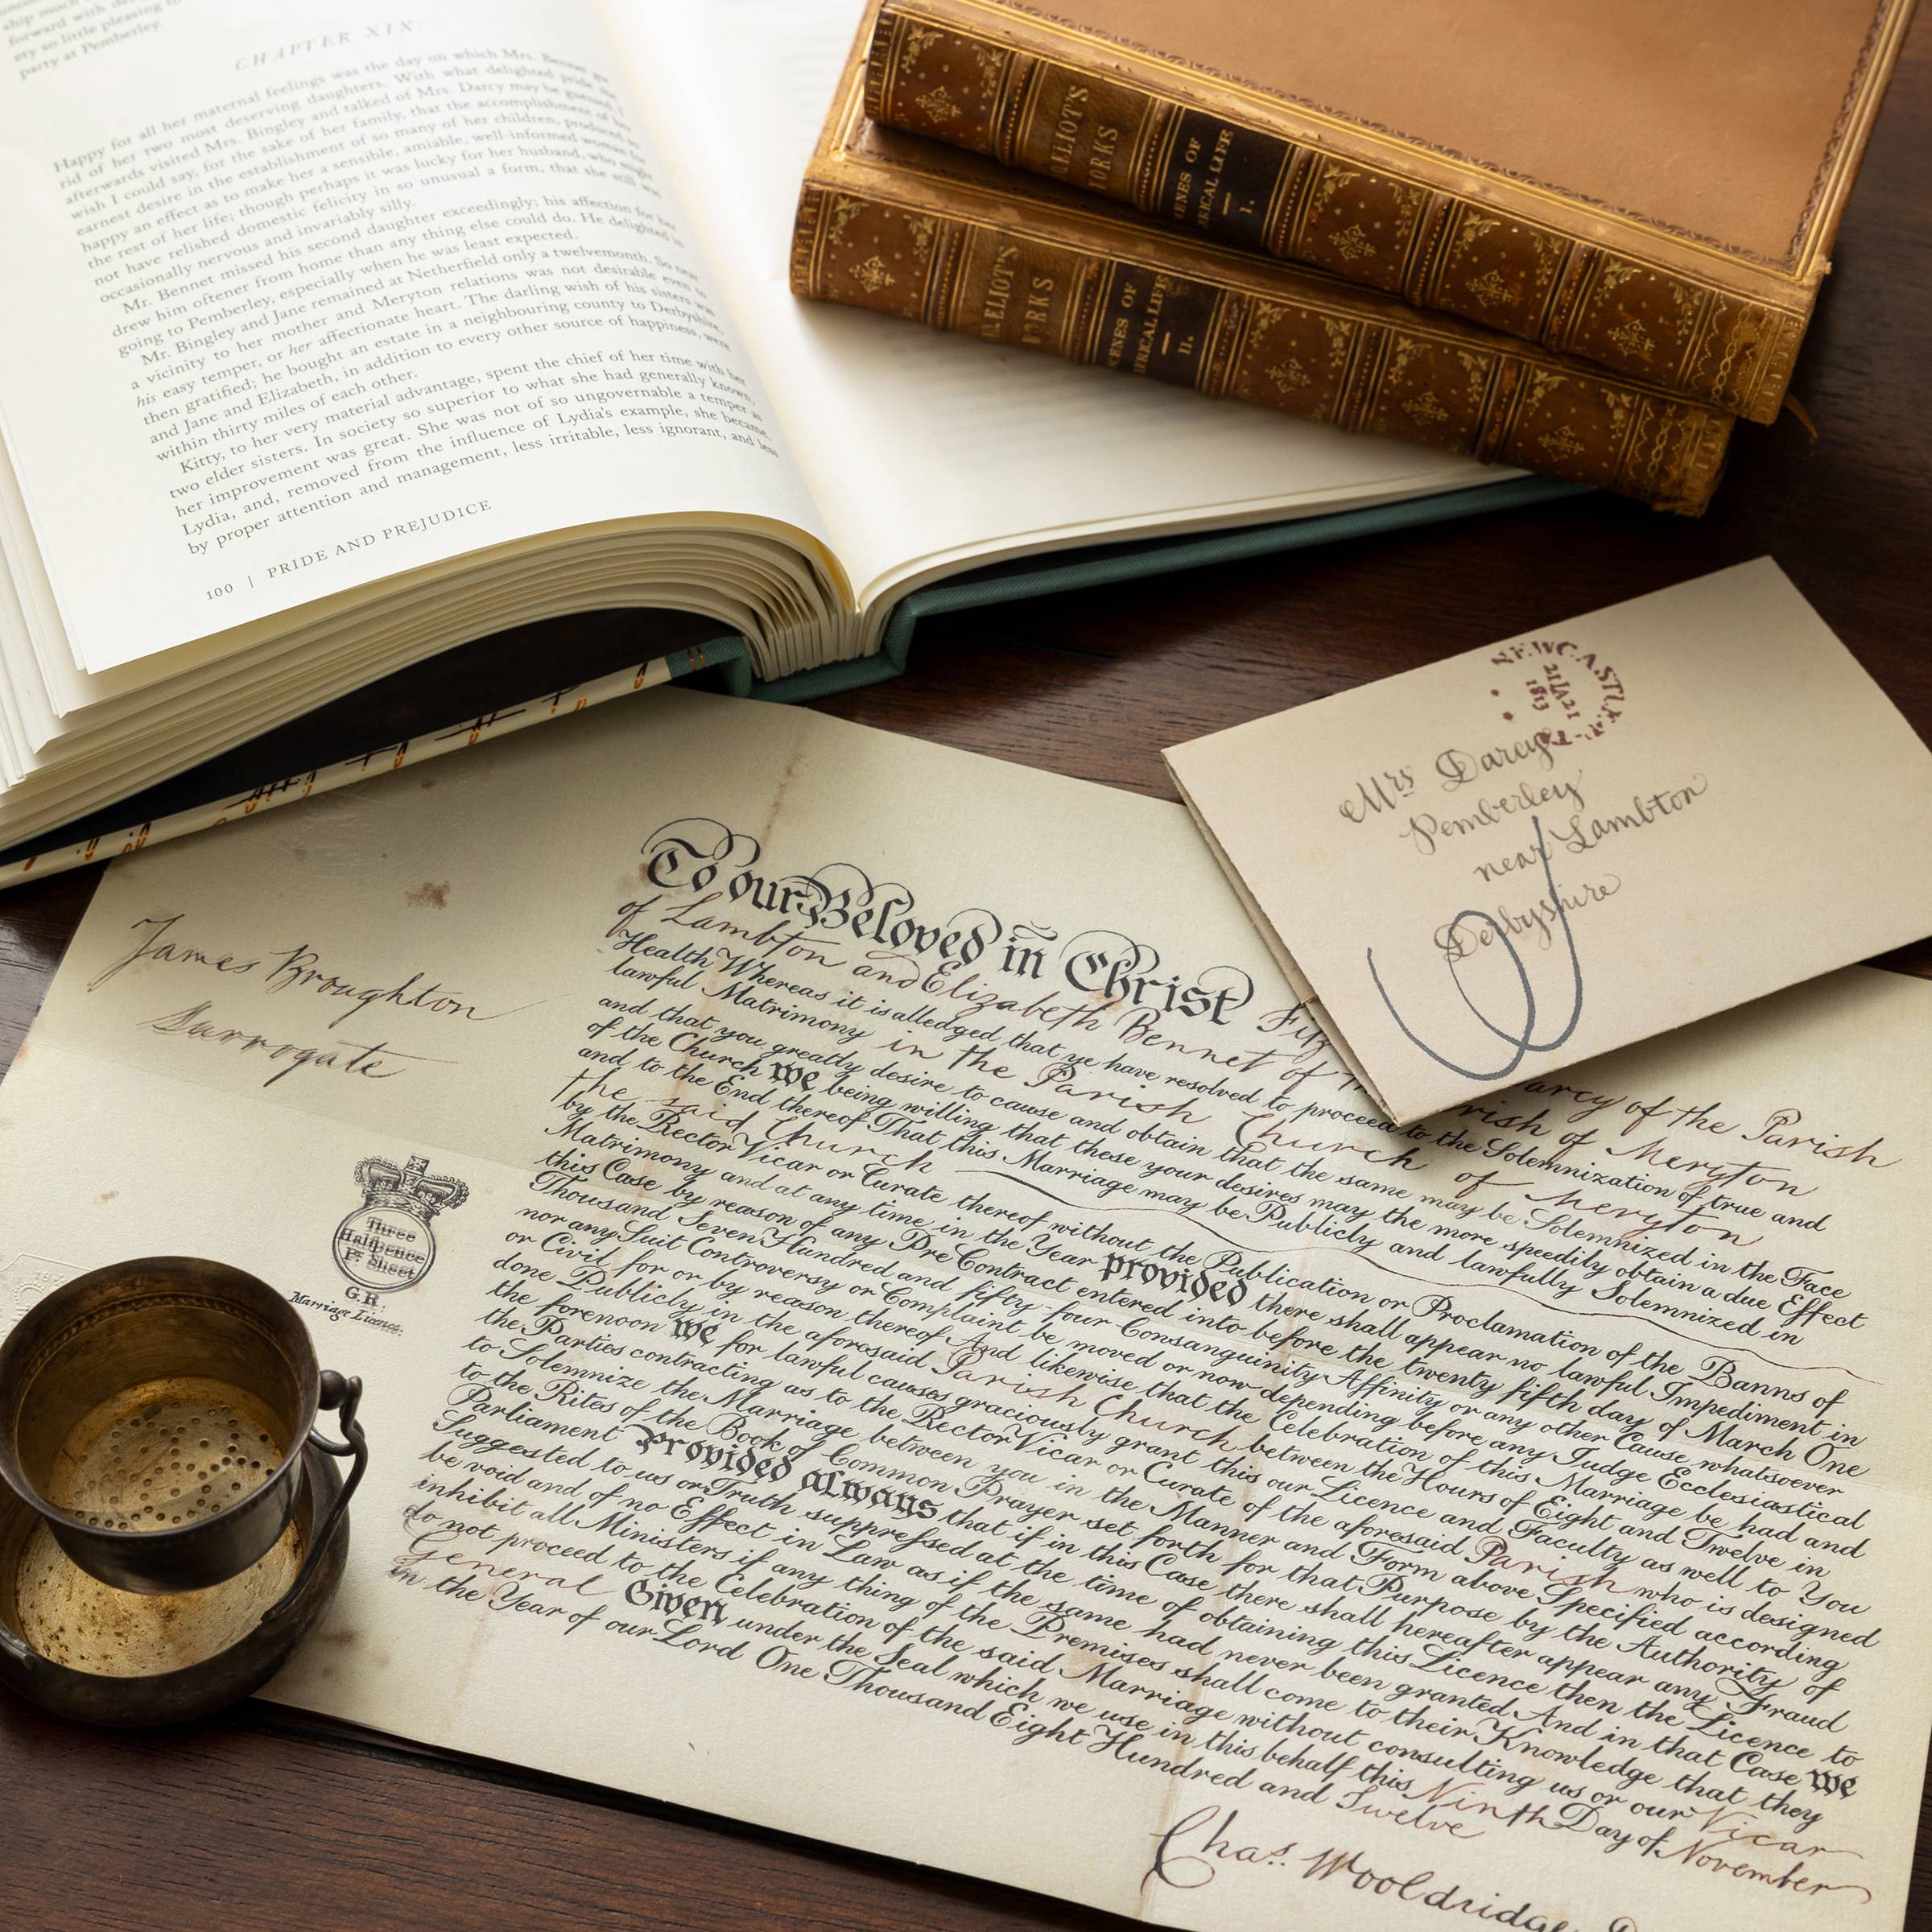 ship much
forward with
ety so little pleasing to
party at Pemberley.
CHAPTER XIX
Happy for all her maternal feelings was the day on which Mrs. Bennet
rid of her two most deserving daughters. With what delighted pride she
afterwards visited Mrs. Bingley and talked of Mrs. Darcy may be guessed. I
wish I could say, for the sake of her family, that the accomplishment of her
earnest desire in the establishment of so many of her children, produced so
happy an effect as to make her a sensible, amiable, well-informed woman for
the rest of her life; though perhaps it was lucky for her husband, who might
not have relished domestic felicity in so unusual a form, that she still was
occasionally nervous and invariably silly.
Mr. Bennet missed his second daughter exceedingly; his affection for her
drew him oftener from home than any thing else could do. He delighted in
going to Pemberley, especially when he was least expected.
Mr. Bingley and Jane remained at Netherfield only a twelvemonth. So near
a vicinity to her mother and Meryton relations was not desirable even to
his easy temper, or her affectionate heart. The darling wish of his sisters was
then gratified; he bought an estate in a neighbouring county to Derbyshire,
and Jane and Elizabeth, in addition to every other source of happiness, were
within thirty miles of each other.
Kitty, to her very material advantage, spent the chief of her time with her
two elder sisters. In society so superior to what she had generally known,
her improvement was great. She was not of so ungovernable a temper as
Lydia, and, removed from the influence of Lydia's example, she became,
by proper attention and management, less irritable, less ignorant, and less
100 | PRIDE AND PREJUDICE
ELIOT'S
WORKS
SCENES OF
CLERICAL LIFE
I.
ELIOT'S
WORKS
SCENES OF
CLERICAL LIFE
II.
NEWCASTLE-T
21JA21
1813
Mrs Darcy
Pemberley
near Lambton
Derbyshire
James Broughton
Surrogate
Three
Halfpence
Pr. Sheet
G.R.
Marriage Licence.
To our Beloved in Christ Fitz arcy of the Parish
of Lambton and Elizabeth Bennet of rish of Meryton
Health Whereas it is alledged that ye have resolved to proceed to the Solemnization of true and
lawful Matrimony in the Parish Church of Meryton
and that you greatly desire to cause and obtain that the same may be Solemnized in the Face
of the Church we being willing that these your desires may the more speedily obtain a due Effect
and to the End thereof That this Marriage may be Publicly and lawfully Solemnized in
the said Church
by the Rector Vicar or Curate thereof without the Publication or Proclamation of the Banns of
Matrimony and at any time in the Year provided there shall appear no lawful Impediment in
this Case by reason of any Pre Contract entered into before the twenty fifth day of March One
Thousand Seven Hundred and fifty-four Consanguinity Affinity or any other Cause whatsoever
nor any Suit Controversy or Complaint be moved or now depending before any Judge Ecclesiastical
or Civil for or by reason thereof And likewise that the Celebration of this Marriage be had and
done Publicly in the aforesaid Parish Church between the Hours of Eight and Twelve in
the forenoon we for lawful causes graciously grant this our Licence and Faculty as well to You
the Parties contracting as to the Rector Vicar or Curate of the aforesaid Parish who is designed
to Solemnize the Marriage between you in the Manner and Form above Specified according
to the Rites of the Book of Common Prayer set forth for that Purpose by the Authority of
Parliament Provided always that if in this Case there shall hereafter appear any Fraud
Suggested to us or Truth suppressed at the time of obtaining this Licence then the Licence to
be void and of no Effect in Law as if the same had never been granted And in that Case we
inhibit all Ministers if any thing of the Premises shall come to their Knowledge that they
do not proceed to the Celebration of the said Marriage without consulting us or our Vicar
General Given under the Seal which we use in this behalf this Ninth Day of November
in the Year of our Lord One Thousand Eight Hundred and Twelve
Chas. Wooldridge